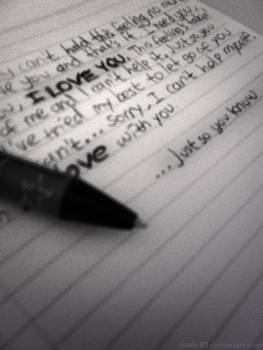 can't hold this feeling no more
you and that's it... I need you, I
I LOVE YOU. This feeling takes
of me and I can't help it, just so you
I've tried my best to let go of you
can't... Sorry, I can't help myself,
love with you.
...Just so you know